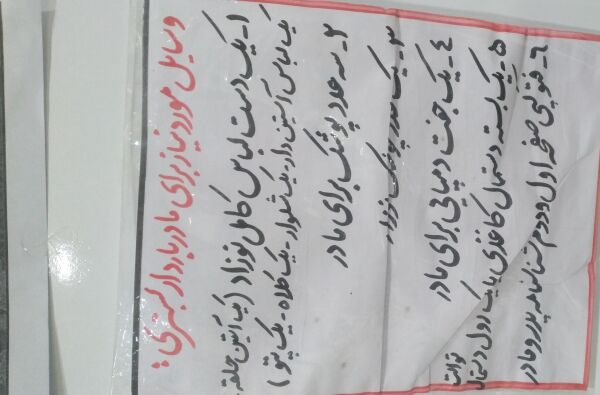 وسایل مورد نیاز برای مادر باردار بستری:
۱- یک دست لباس کامل نوزاد (یک آستین حلقه -
یک لباس آستین دار - یک شلوار - یک کلاه - یک پتو)
۲- سه عدد پوشک برای مادر
۳- یک عدد پوشک نوزاد
۴- یک جفت دمپایی برای مادر
۵- یک بسته دستمال کاغذی یا یک رول دستمال
توالت
۶- فتوکپی صفحه اول و دوم شناسنامه پدر و مادر